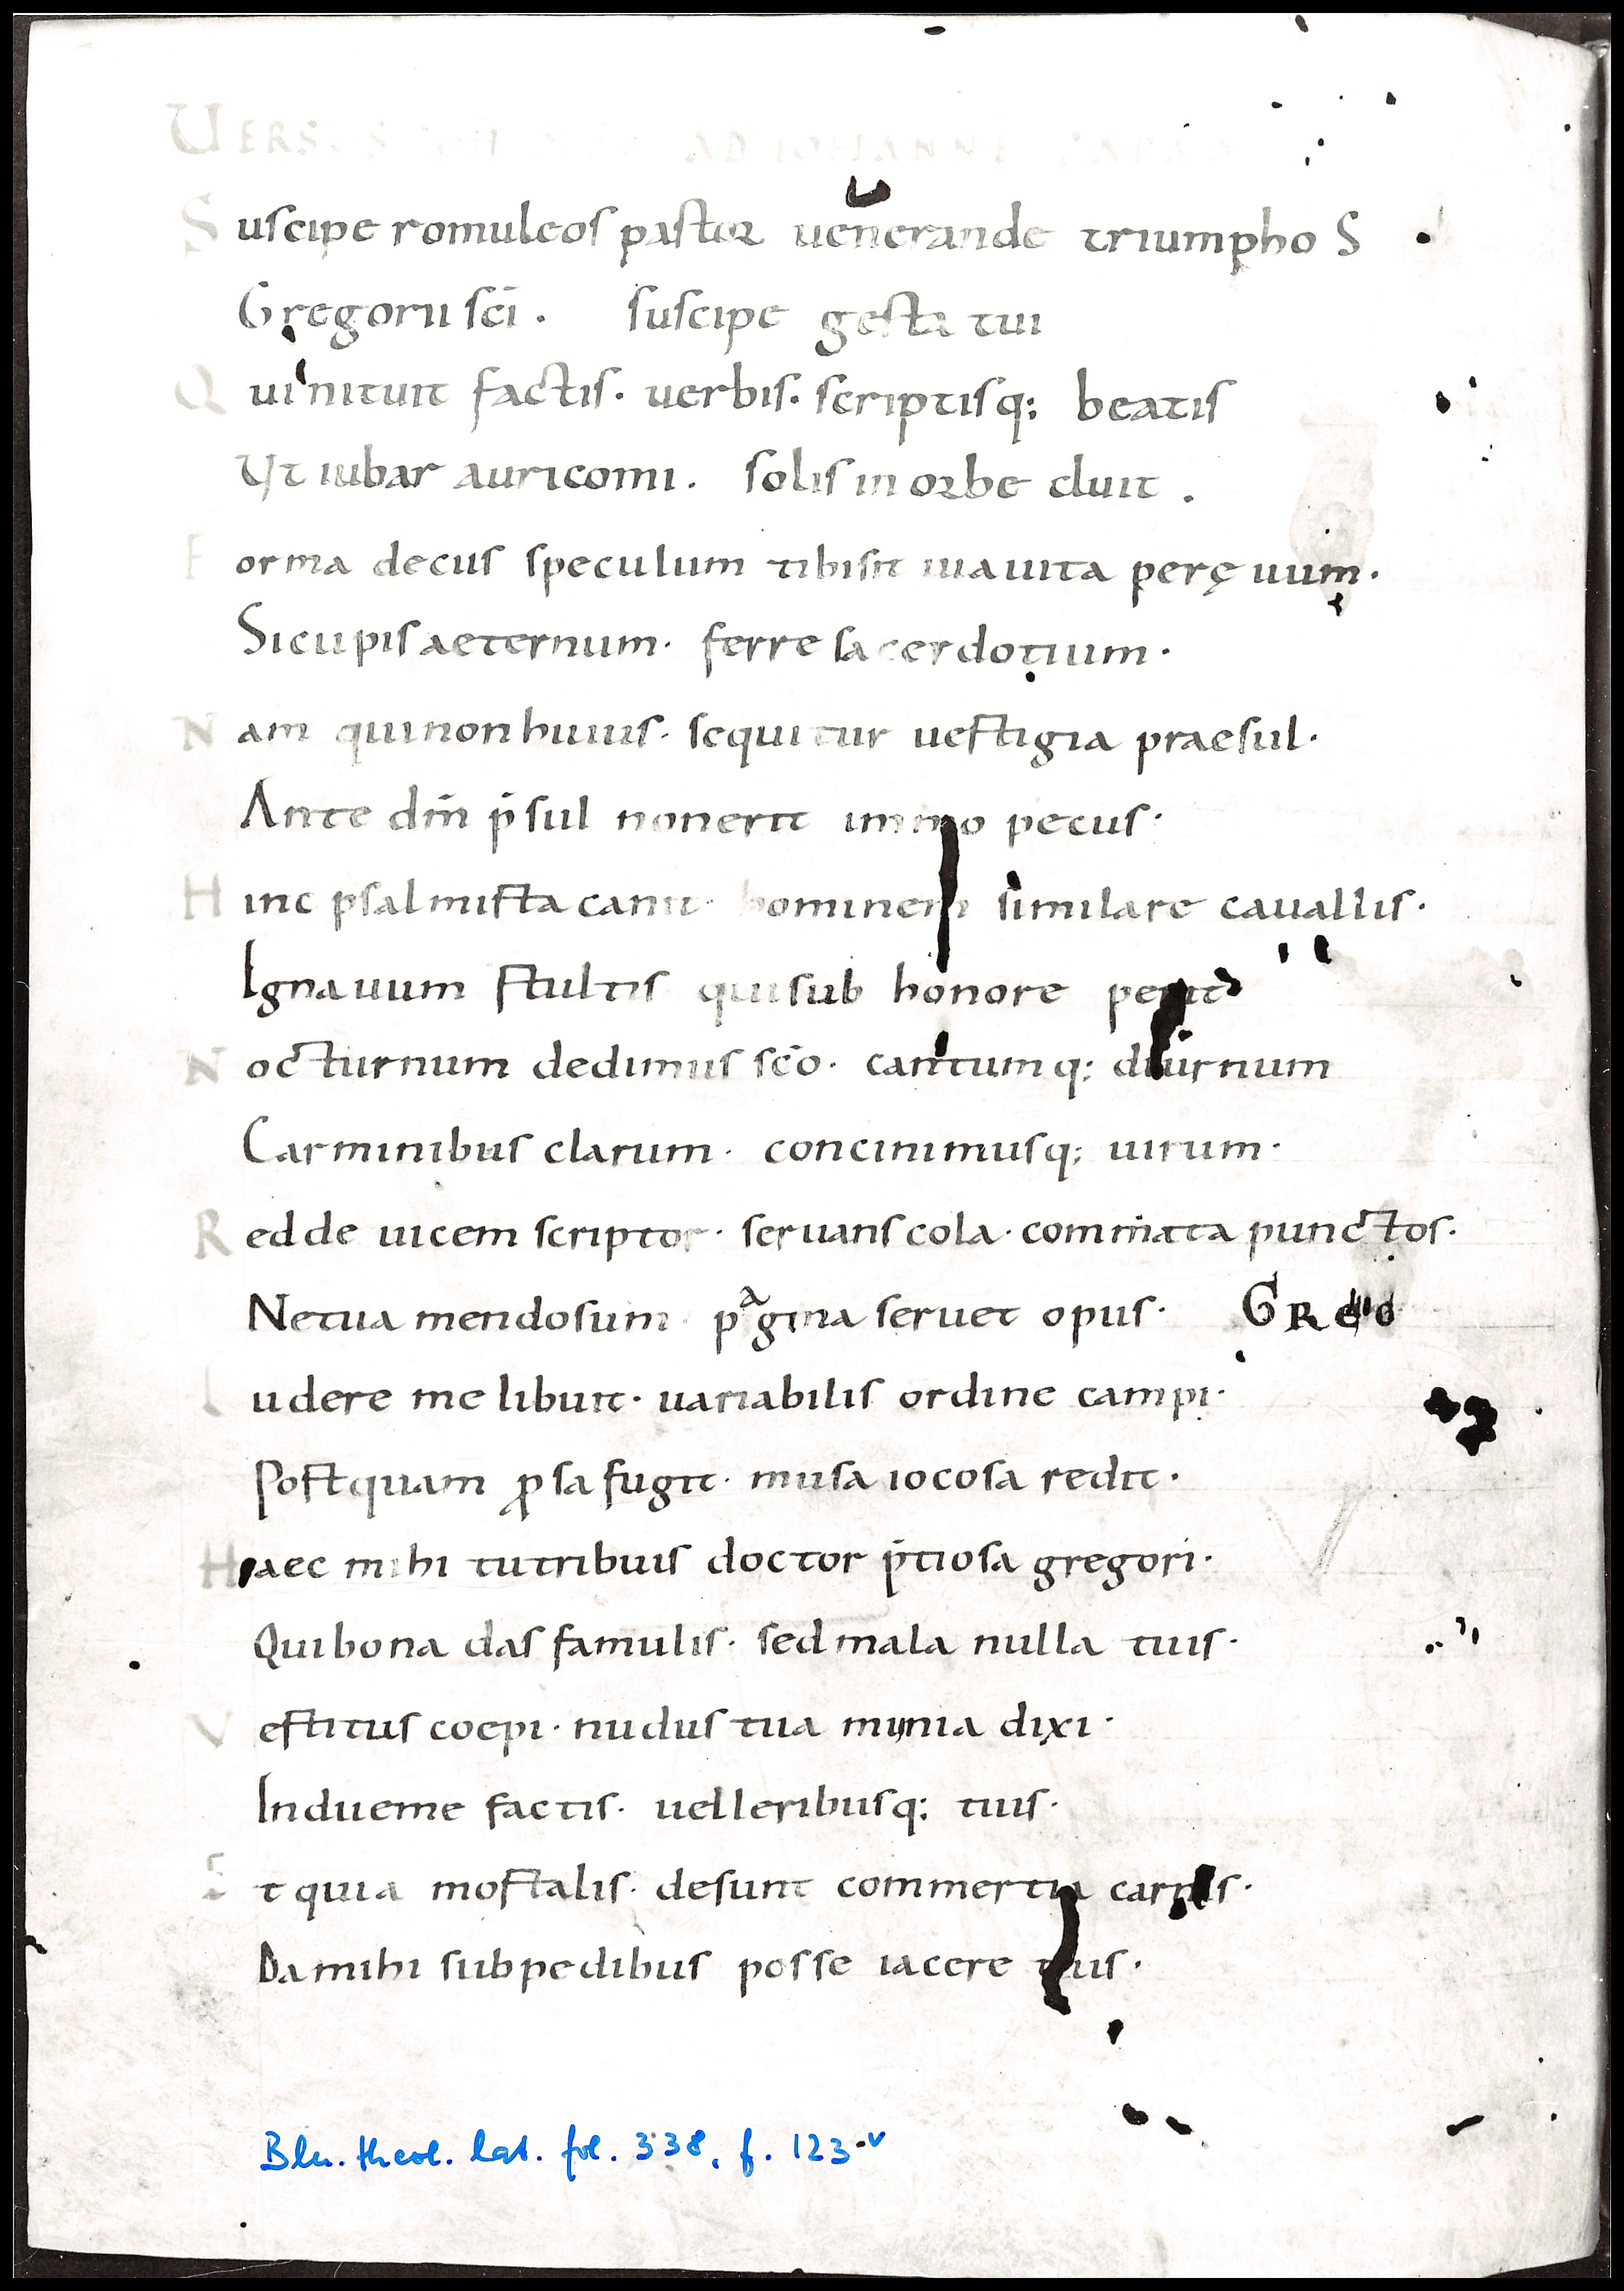 UERSUS AD IOHANNE PAPA
Suscipe romuleos pastor uenerande triumphoS
Gregorii sc̄i. suscipe gesta tui
Qui nituit factis. uerbis. scriptisq; beatis
Ut iubar auricomi. solis in orbe cluit.
Forma decus speculum tibisit uita peręuum.
Sicupis aeternum. ferre sacerdotium.
Nam quinonhuius. sequitur uestigia praesul.
Ante dm̄ p̄sul nonerit immo pecus.
Hinc psalmista canit. hominem similare cauallis.
Ignauum stultis quisub honore perit
Nocturnum dedimus sc̄o. cantumq; diurnum
Carminibus clarum. concinimusq; uirum.
Redde uicem scriptor. seruans cola. commata punctos.
Netua mendosum pagina seruet opus. GReG
Ludere me libuit. uariabilis ordine campi.
Postquam ꝓsa fugit. musa iocosa redit.
Haec mihi tutribuis doctor p̄tiosa gregori.
Quibona das famulis. sedmala nulla tuis.
Vestitus coepi. nudus tua mynia dixi.
Indueme factis. uelleribusq; tuis.
Et quia mostalis. desunt commertia carnis.
Damihi subpedibus posse iacere tuis.
Bln. theol. lat. fol. 338, f. 123v